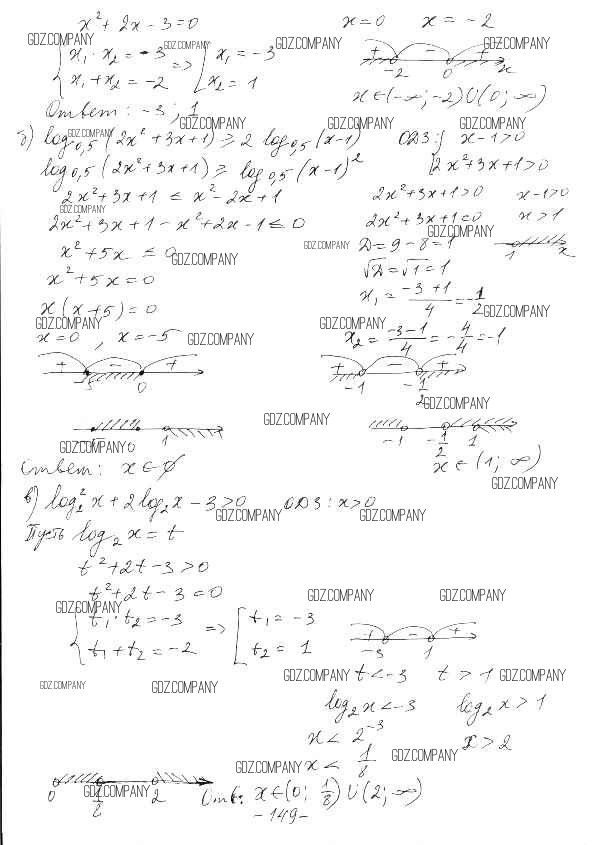 x² + 2x - 3 = 0
x₁ · x₂ = -3 => x₁ = -3
x₁ + x₂ = -2 x₂ = 1
Ответ: -3; 1
x = 0 x = -2
+ - +
-2 0 x
x ∈ (-∞; -2) ∪ (0; ∞)
б) log₀,₅ (2x² + 3x + 1) ≥ 2 log₀,₅ (x - 1)
log₀,₅ (2x² + 3x + 1) ≥ log₀,₅ (x - 1)²
2x² + 3x + 1 ≤ x² - 2x + 1
2x² + 3x + 1 - x² + 2x - 1 ≤ 0
x² + 5x ≤ 0
x² + 5x = 0
x (x + 5) = 0
x = 0, x = -5
+ - +
-5 0
ОДЗ: x - 1 > 0
2x² + 3x + 1 > 0
2x² + 3x + 1 > 0 x - 1 > 0
2x² + 3x + 1 = 0 x > 1
D = 9 - 8 = 1 1 x
√D = √1 = 1
x₁ = (-3 + 1)/4 = -1/2
x₂ = (-3 - 1)/4 = -4/4 = -1
+ - +
-1 -1/2
-5 0 1
-1 -1/2 1
Ответ: x ∈ ∅
x ∈ (1; ∞)
в) log₂² x + 2 log₂ x - 3 > 0 ОДЗ: x > 0
Пусть log₂ x = t
t² + 2t - 3 > 0
t² + 2t - 3 = 0
t₁ · t₂ = -3 => t₁ = -3
t₁ + t₂ = -2 t₂ = 1
+ - +
-3 1
t < -3 t > 1
log₂ x < -3 log₂ x > 1
x < 2⁻³
x < 1/8 x > 2
0 1/8 2
Отв: x ∈ (0; 1/8) ∪ (2; ∞)
- 149 -
GDZ.COMPANY